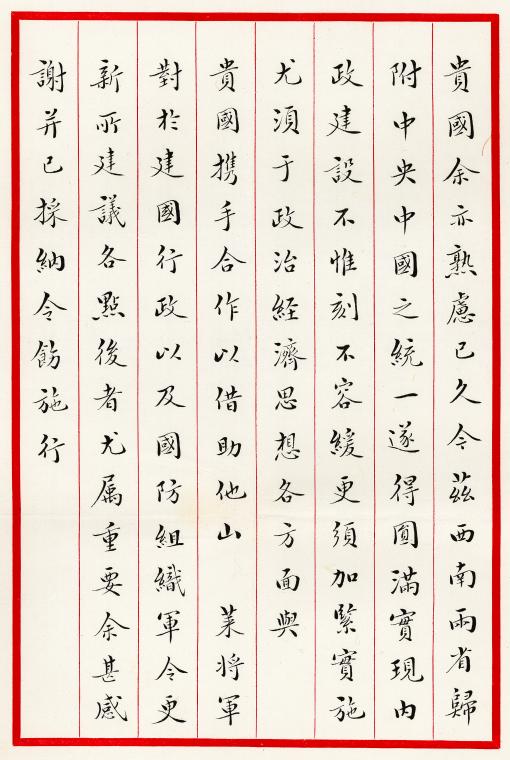 貴國余亦熟慮已久今茲西南兩省歸
附中央中國之統一遂得圓滿實現内
政建設不惟刻不容緩更須加緊實施
尤須于政治経濟思想各方面與
貴國携手合作以借助他山 莱将軍
對於建國行政以及國防組織軍令更
新所建議各點後者尤属重要余甚感
謝并已採納令飭施行